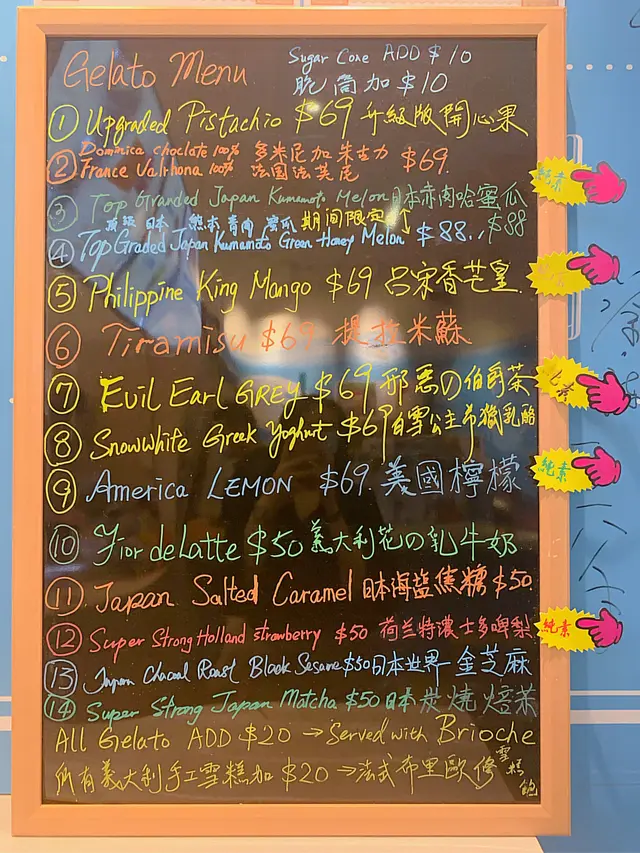 Gelato Menu
Sugar Cone ADD $10
脆筒加$10
① Upgraded Pistachio $69 升級版開心果
② Dominica choclate 100% 多米尼加朱古力 $69.
France Valrhona 100% 法国法芙尼
③ Top Granded Japan Kumamoto Melon 日本赤肉哈蜜瓜 $88
頂級 日本 熊本 青肉 蜜瓜 期間限定
④ Top Graded Japan Kumamoto Green Honey Melon $88..
⑤ Philippine King Mango $69 呂宋香芒皇
⑥ Tiramisu $69 提拉米蘇
⑦ Evil Earl GREY $69 邪惡の伯爵茶
⑧ Snowwhite Greek Yoghurt $69 白雪公主希臘乳酪
⑨ America LEMON $69. 美國檸檬
⑩ Fior deLatte $50 義大利花の乳牛奶
⑪ Japan Salted Caramel 日本海盐焦糖 $50
⑫ Super Strong Holland strawberry $50 荷兰特濃士多啤梨
⑬ Japan Chacoal Roast Black Sesame $50 日本世界一金芝麻
⑭ Super Strong Japan Matcha $50 日本炭燒焙茶
All Gelato ADD $20 → Served with Brioche
所有義大利手工雪糕加 $20 → 法式布里歐修雪糕飽
純素
純素
純素